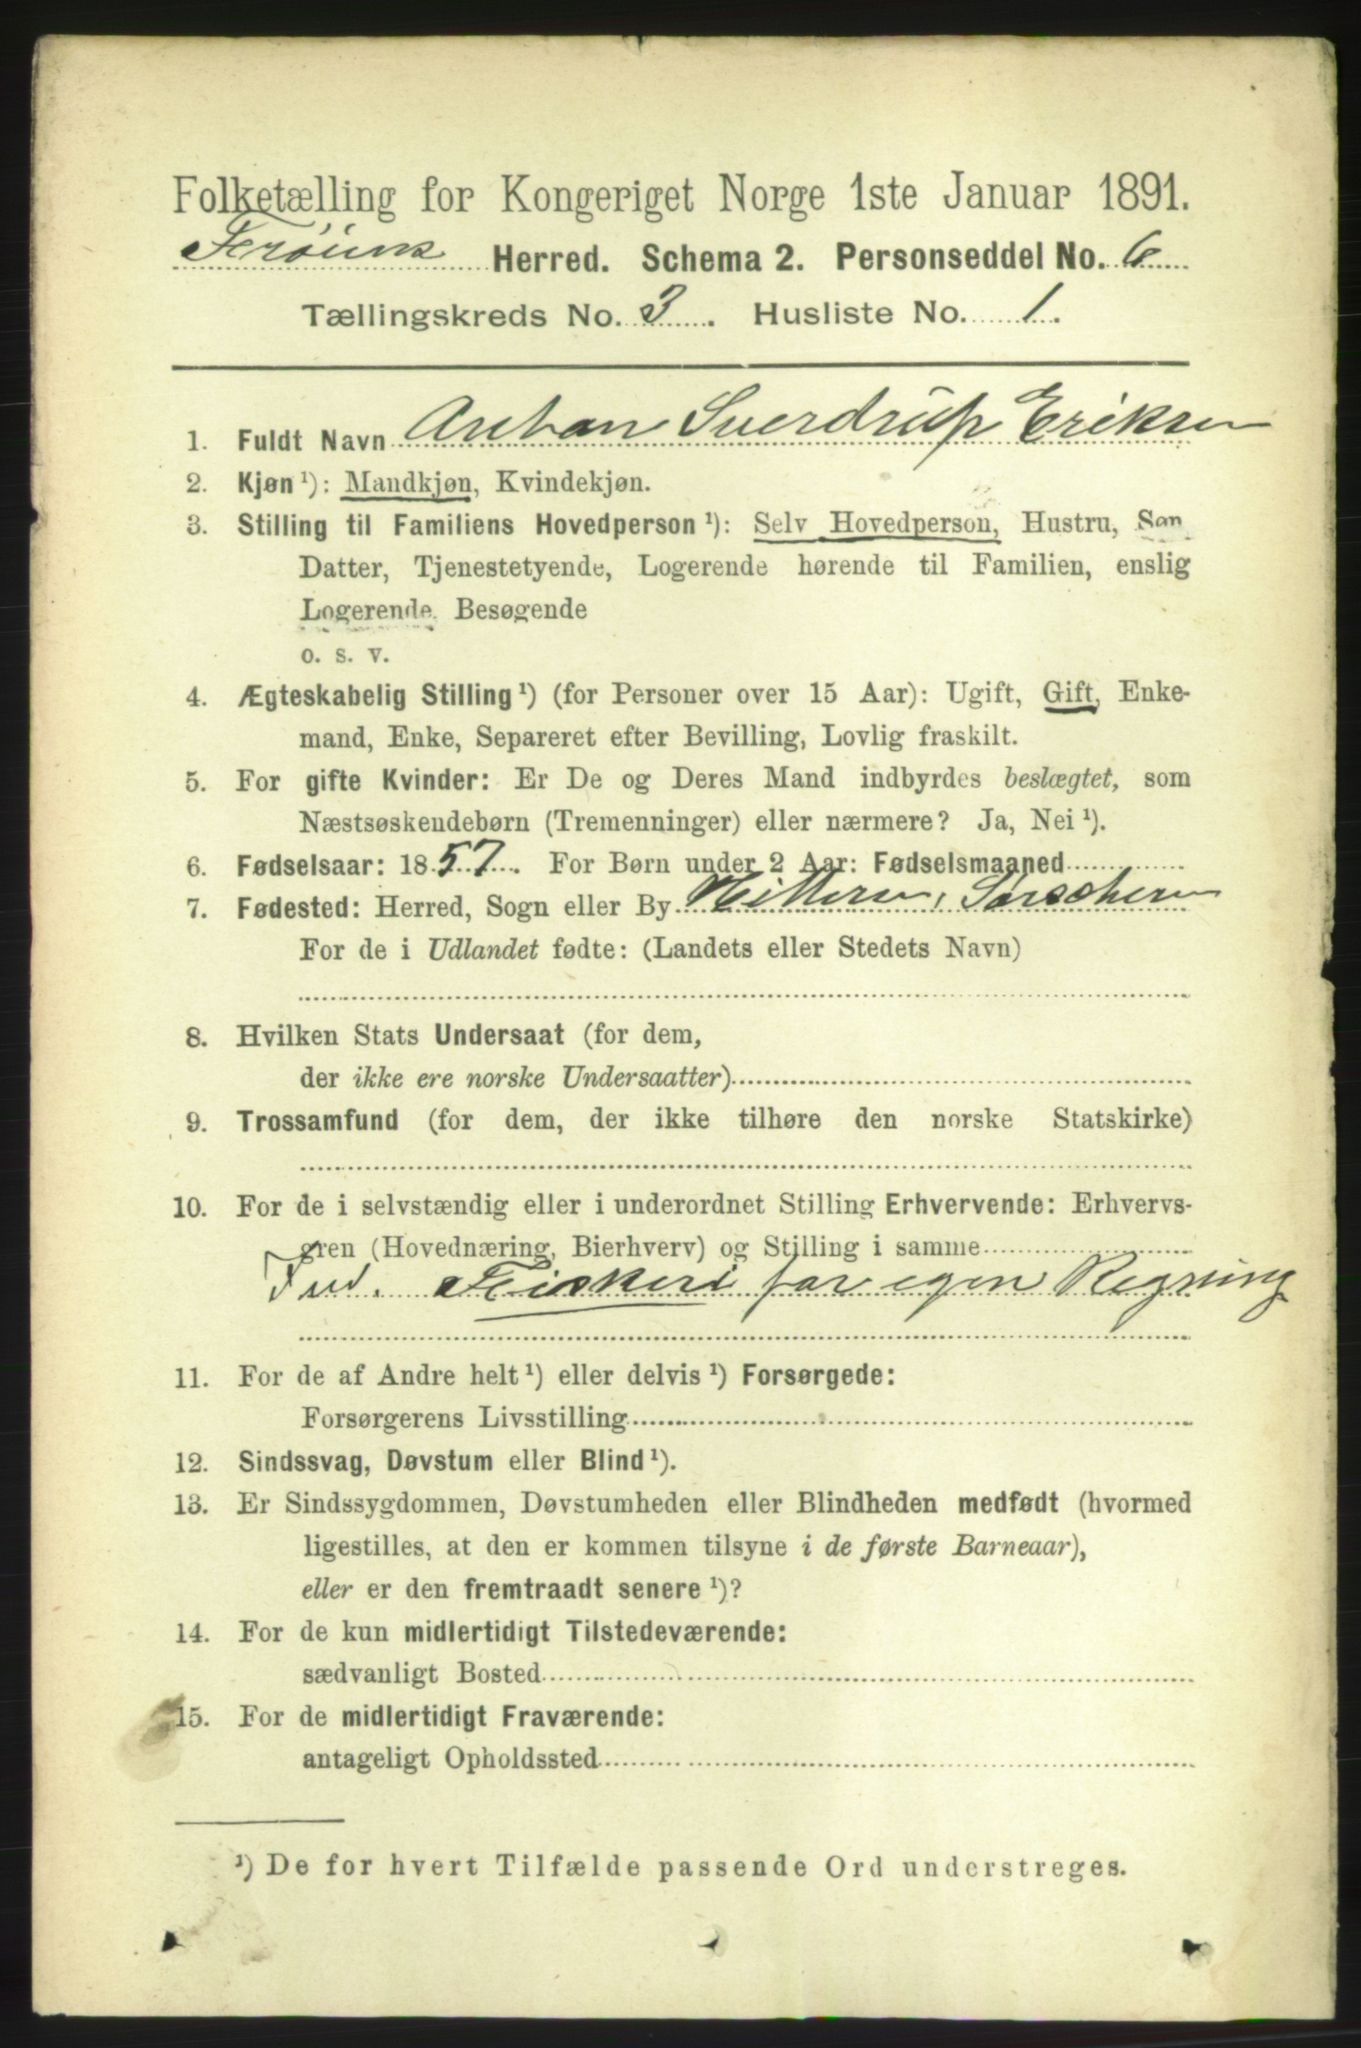 Folketælling for Kongeriget Norge 1ste Januar 1891.
Herred. Schema 2. Personseddel No. 6
Tællingskreds No. 3. Husliste No. 1.
1. Fuldt Navn Anton Sverdrup Eriksen
2. Kjøn ¹): Mandkjøn, Kvindekjøn.
3. Stilling til Familiens Hovedperson ¹): Selv Hovedperson, Hustru, Søn
Datter, Tjenestetyende, Logerende hørende til Familien, enslig
Logerende, Besøgende
o. s. v.
4. Ægteskabelig Stilling ¹) (for Personer over 15 Aar): Ugift, Gift, Enke-
mand, Enke, Separeret efter Bevilling, Lovlig fraskilt.
5. For gifte Kvinder: Er De og Deres Mand indbyrdes beslægtet, som
Næstsøskendebørn (Tremenninger) eller nærmere? Ja, Nei ¹).
6. Fødselsaar: 1857. For Børn under 2 Aar: Fødselsmaaned
7. Fødested: Herred, Sogn eller By Hitteren,
For de i Udlandet fødte: (Landets eller Stedets Navn)
8. Hvilken Stats Undersaat (for dem,
der ikke ere norske Undersaatter)
9. Trossamfund (for dem, der ikke tilhøre den norske Statskirke)
10. For de i selvstændig eller i underordnet Stilling Erhvervende: Erhvervs-
gren (Hovednæring, Bierhverv) og Stilling i samme
Ind. Fiskeri for egen Regning
11. For de af Andre helt ¹) eller delvis ¹) Forsørgede:
Forsørgerens Livsstilling
12. Sindssvag, Døvstum eller Blind ¹).
13. Er Sindssygdommen, Døvstumheden eller Blindheden medfødt (hvormed
ligestilles, at den er kommen tilsyne i de første Barneaar),
eller er den fremtraadt senere ¹)?
14. For de kun midlertidigt Tilstedeværende:
sædvanligt Bosted
15. For de midlertidigt Fraværende:
antageligt Opholdssted
¹) De for hvert Tilfælde passende Ord understreges.